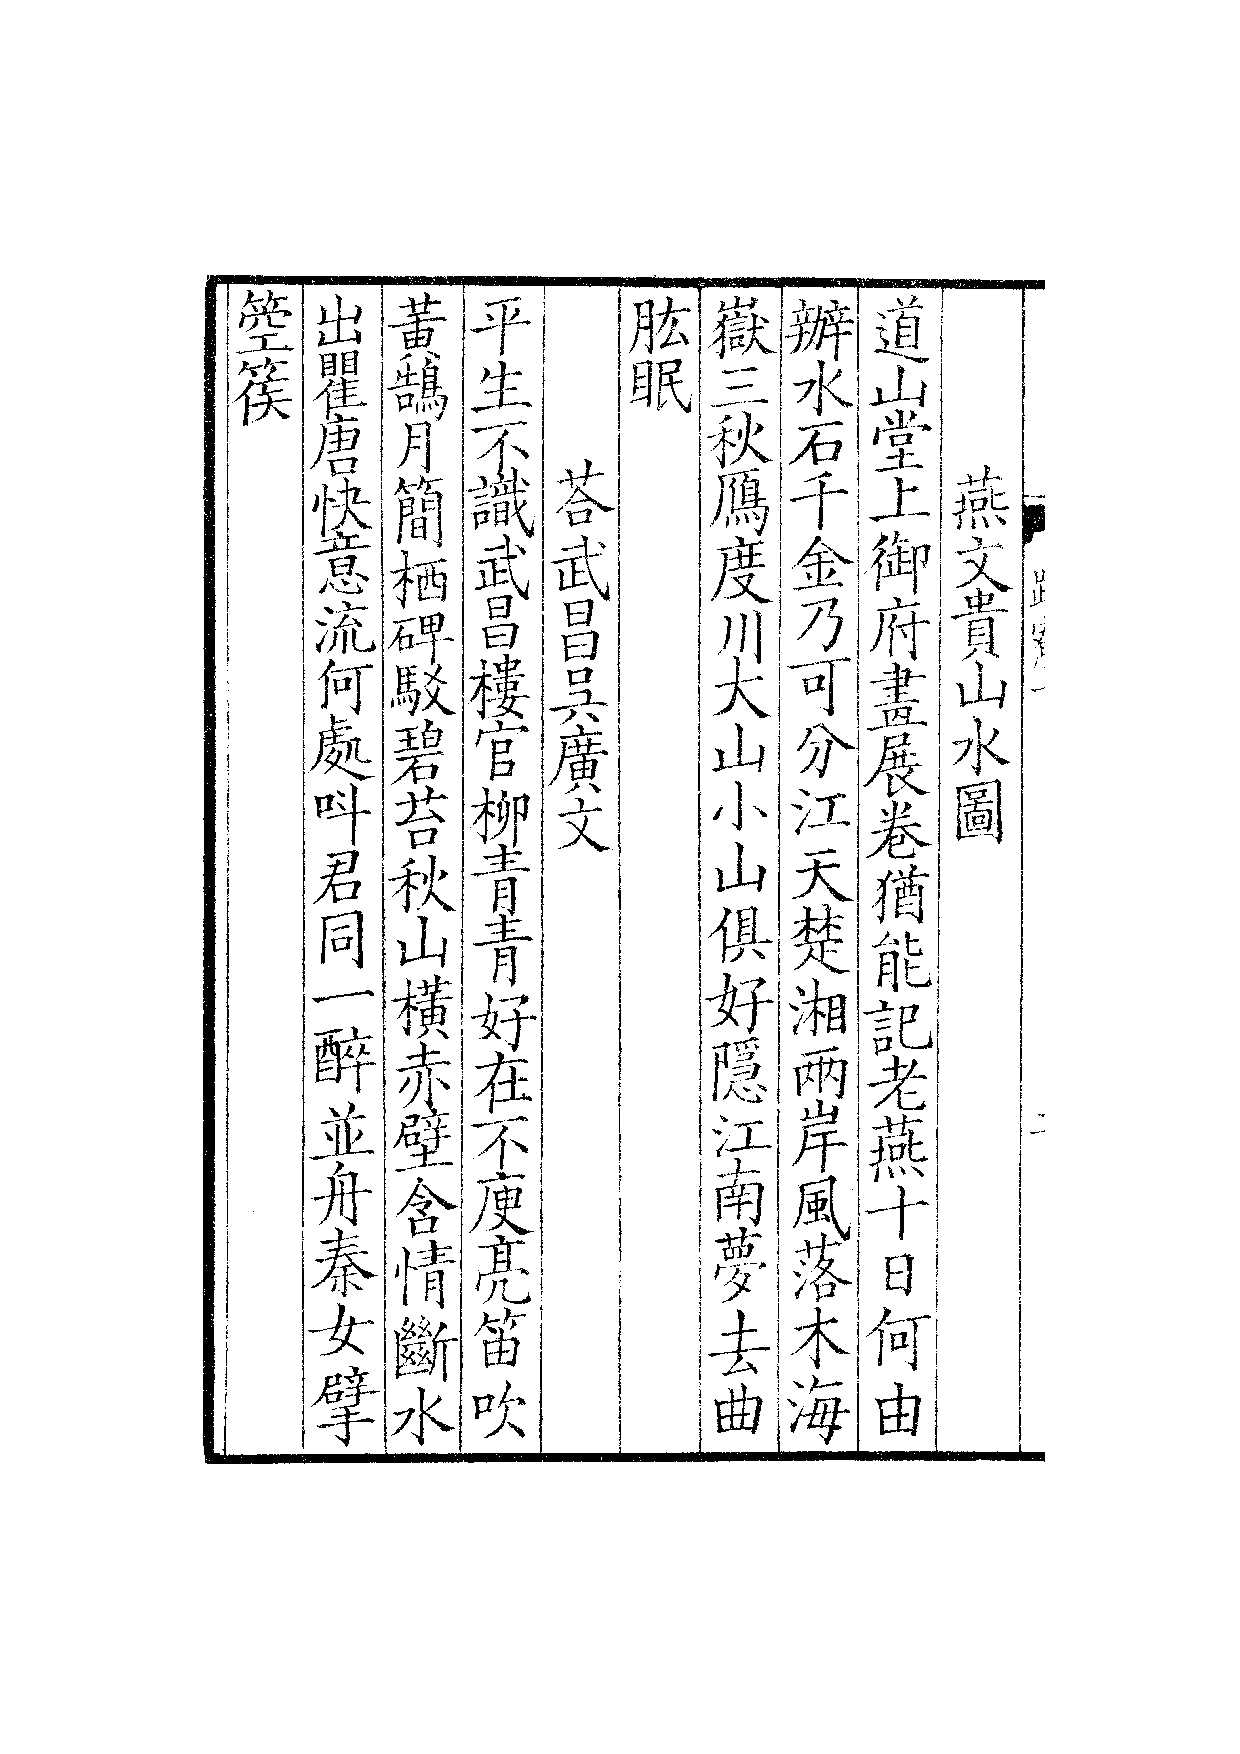 燕文貴山水圖
道山堂上御府畫展卷猶能記老燕十日何由
辦水石千金乃可分江天楚湘兩岸風落木海
嶽三秋鴈度川大山小山俱好隱江南夢去曲
肱眠
荅武昌吳廣文
平生不識武昌樓官柳青青好在不庾亮笛吹
黃鵠月簡栖碑駁碧苔秋山橫赤壁含情斷水
出瞿唐快意流何處呌君同一醉並舟秦女擘
箜篌